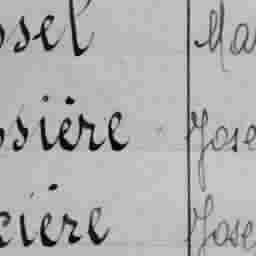 ssel Ma
ssière Jose
cière Jose